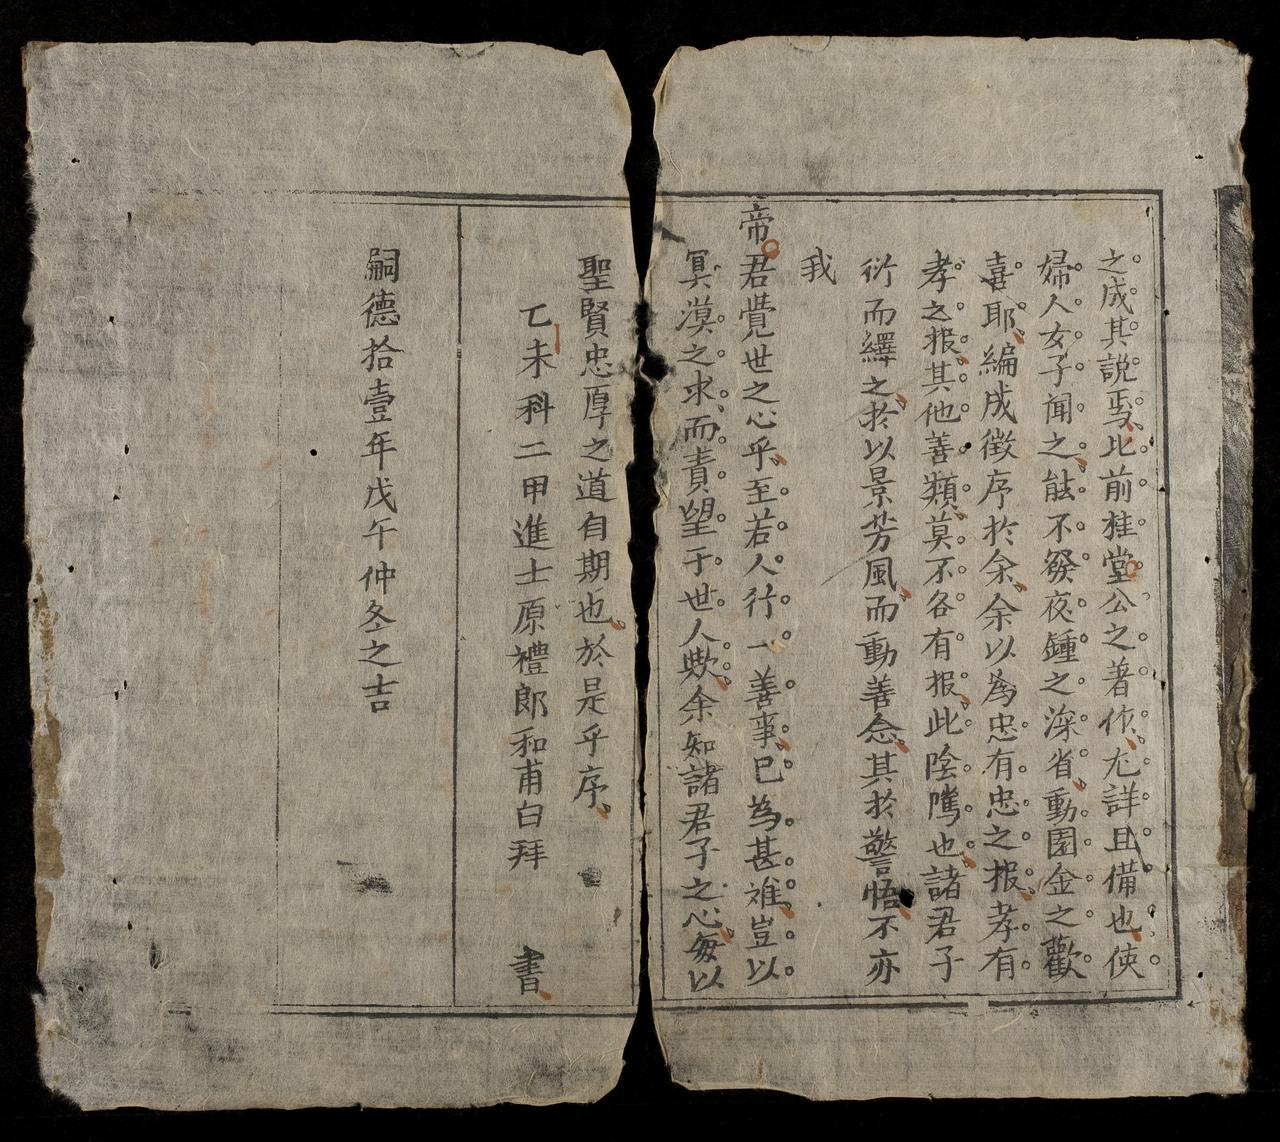 之成其說焉比前桂堂公之著作尤詳且備也使
婦人女子闻之能不發夜鍾之深省動園金之歡
喜耶編成徵序於余余以為忠有忠之报孝有
孝之报其他善類莫不各有报此陰隲也諸君子
衍而繹之於以景芳風而動善念其於警悟不亦
我
帝君覺世之心乎至若人行一善事已為甚难豈以
冥漠之求而責望于世人欤余知諸君子之心每以
聖賢忠厚之道自期也於是乎序
乙未科二甲進士原禮郎和甫白拜書
嗣德拾壹年戊午仲冬之吉